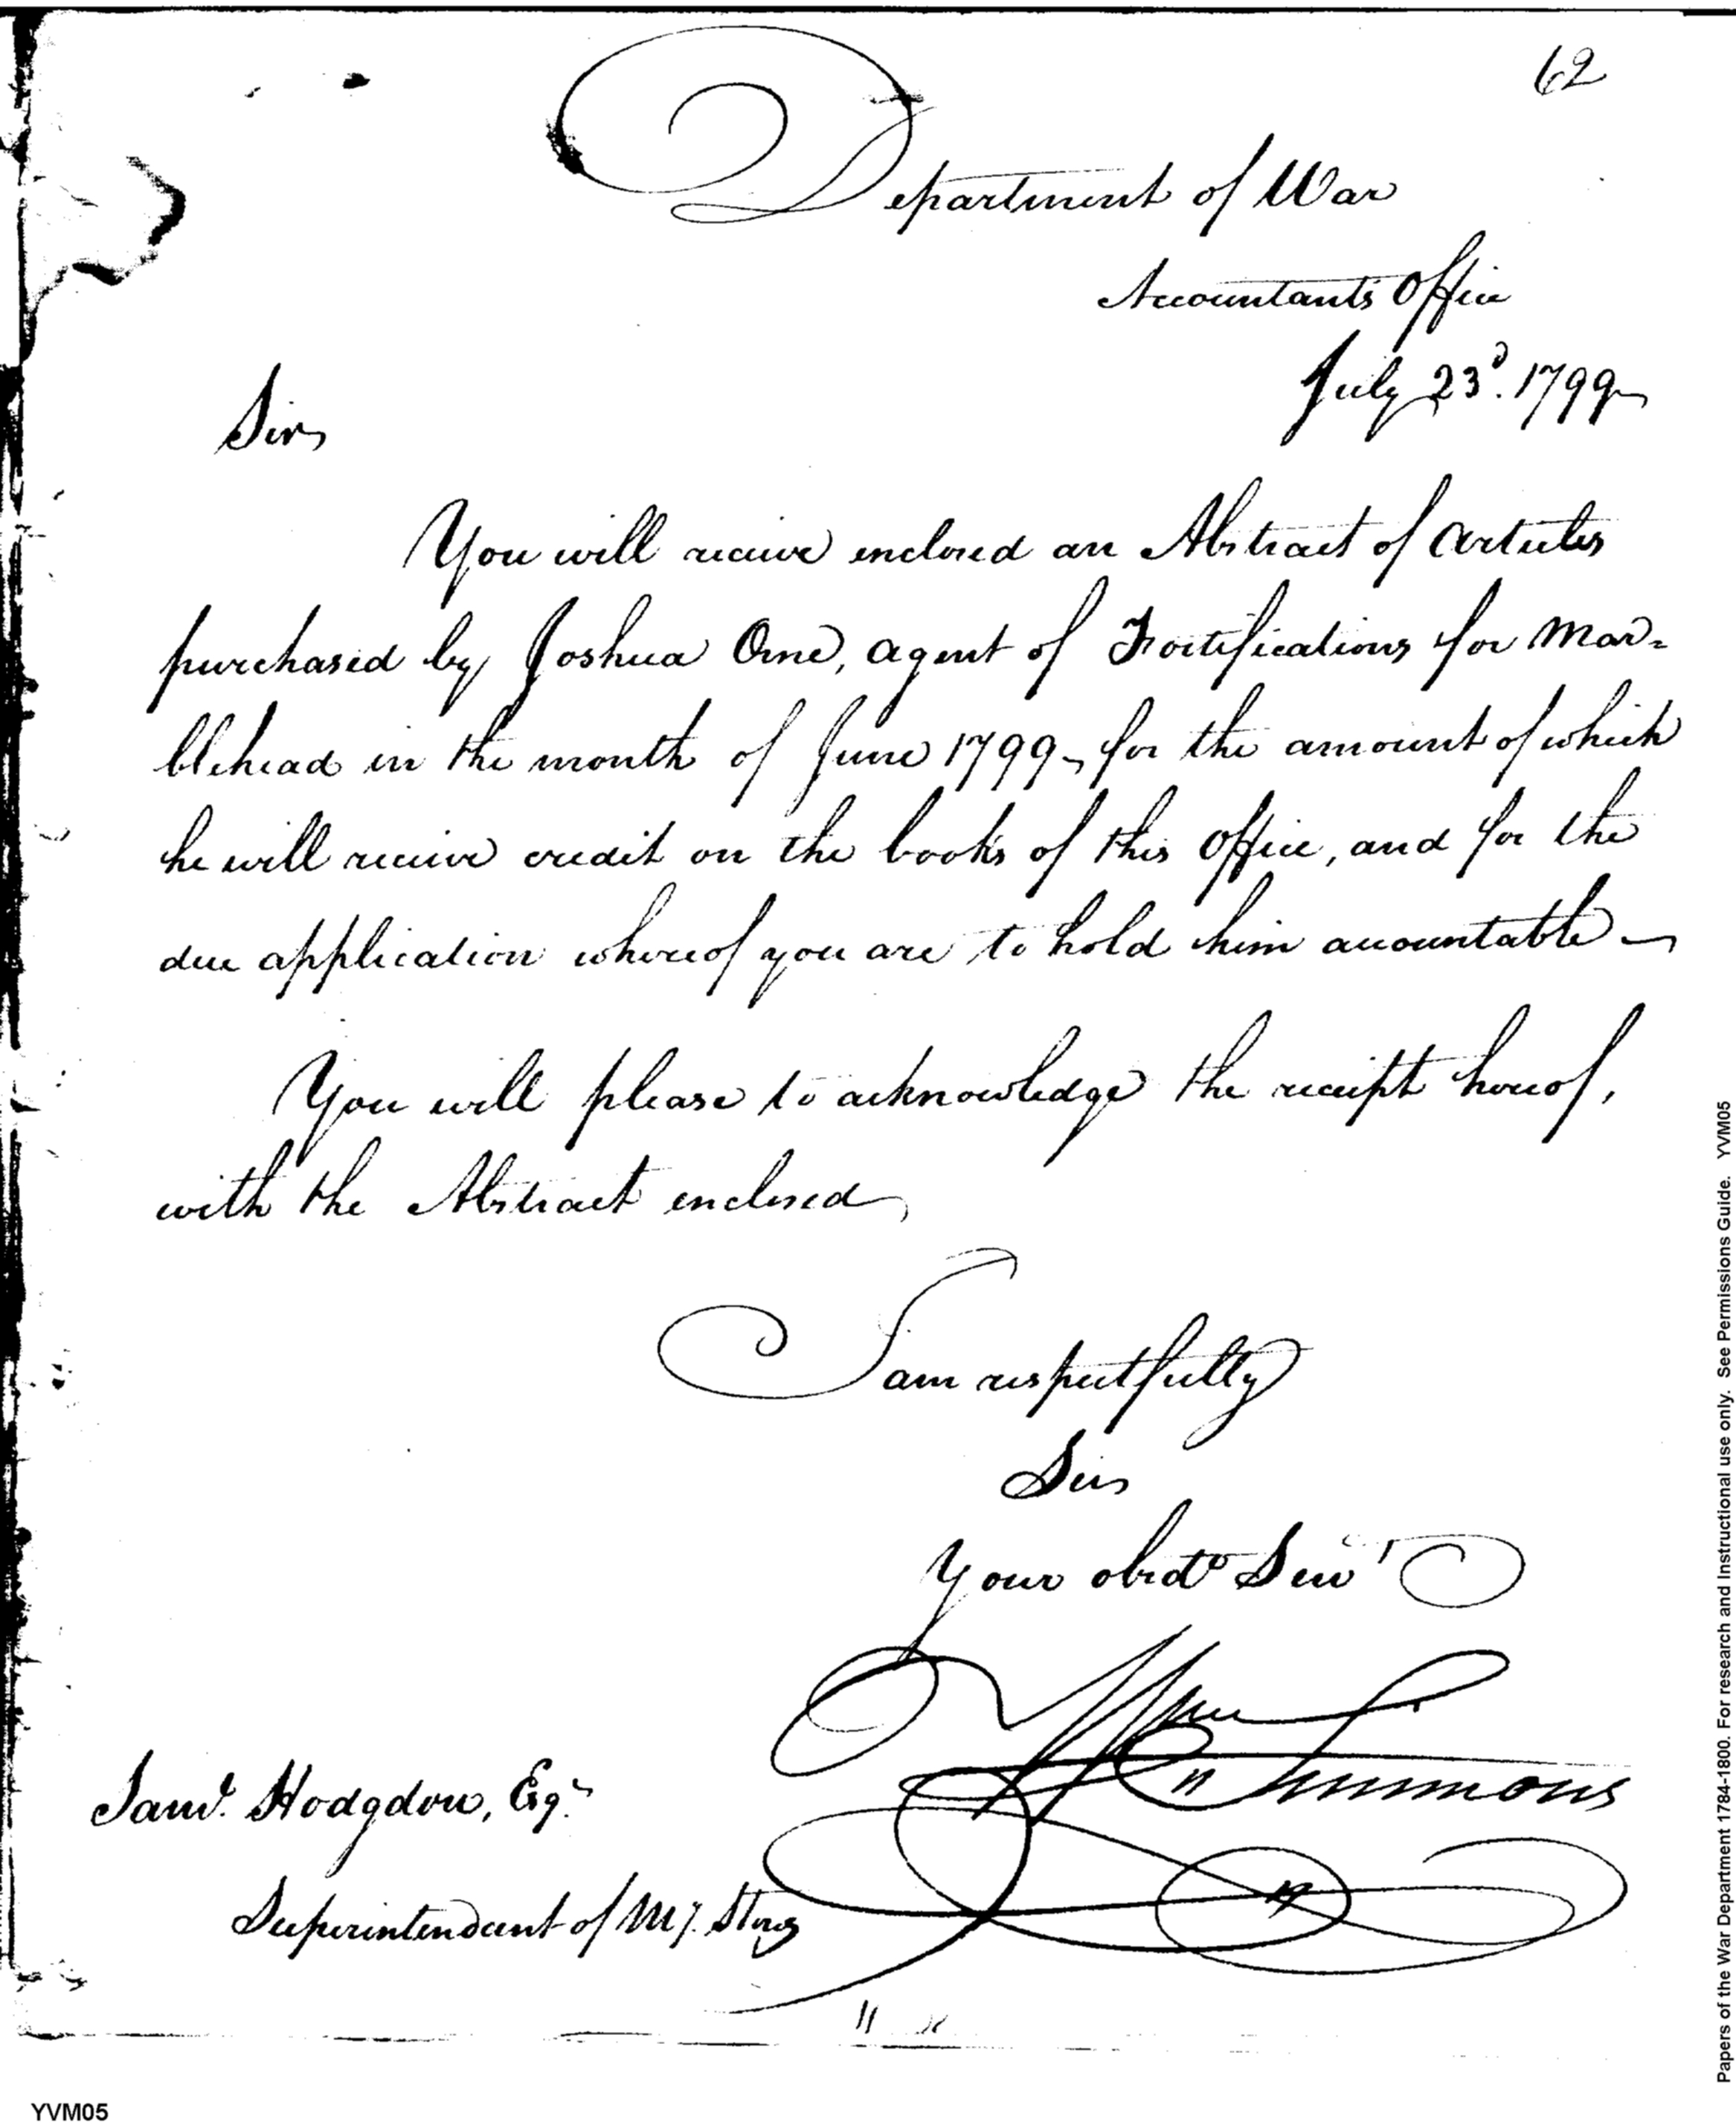 62
Department of War
Accountants Office
July 23d. 1799
Sir
You will receive enclosed an Abstract of Articles
purchased by Joshua Orne, agent of Fortifications for Mar=
blehead in the month of June 1799, for the amount of which
he will receive credit on the books of this Office, and for the
due application whereof you are to hold him accountable
You will please to acknowledge the receipt hereof,
with the Abstract enclosed
I am respectfully
Sir
Your obedt Servt
Wm Simmons
Saml. Hodgdon, Esqr.
Superintendant of My. Stores
Papers of the War Department 1784-1800. For research and Instructional use only. See Permissions Guide. YVM05
YVM05